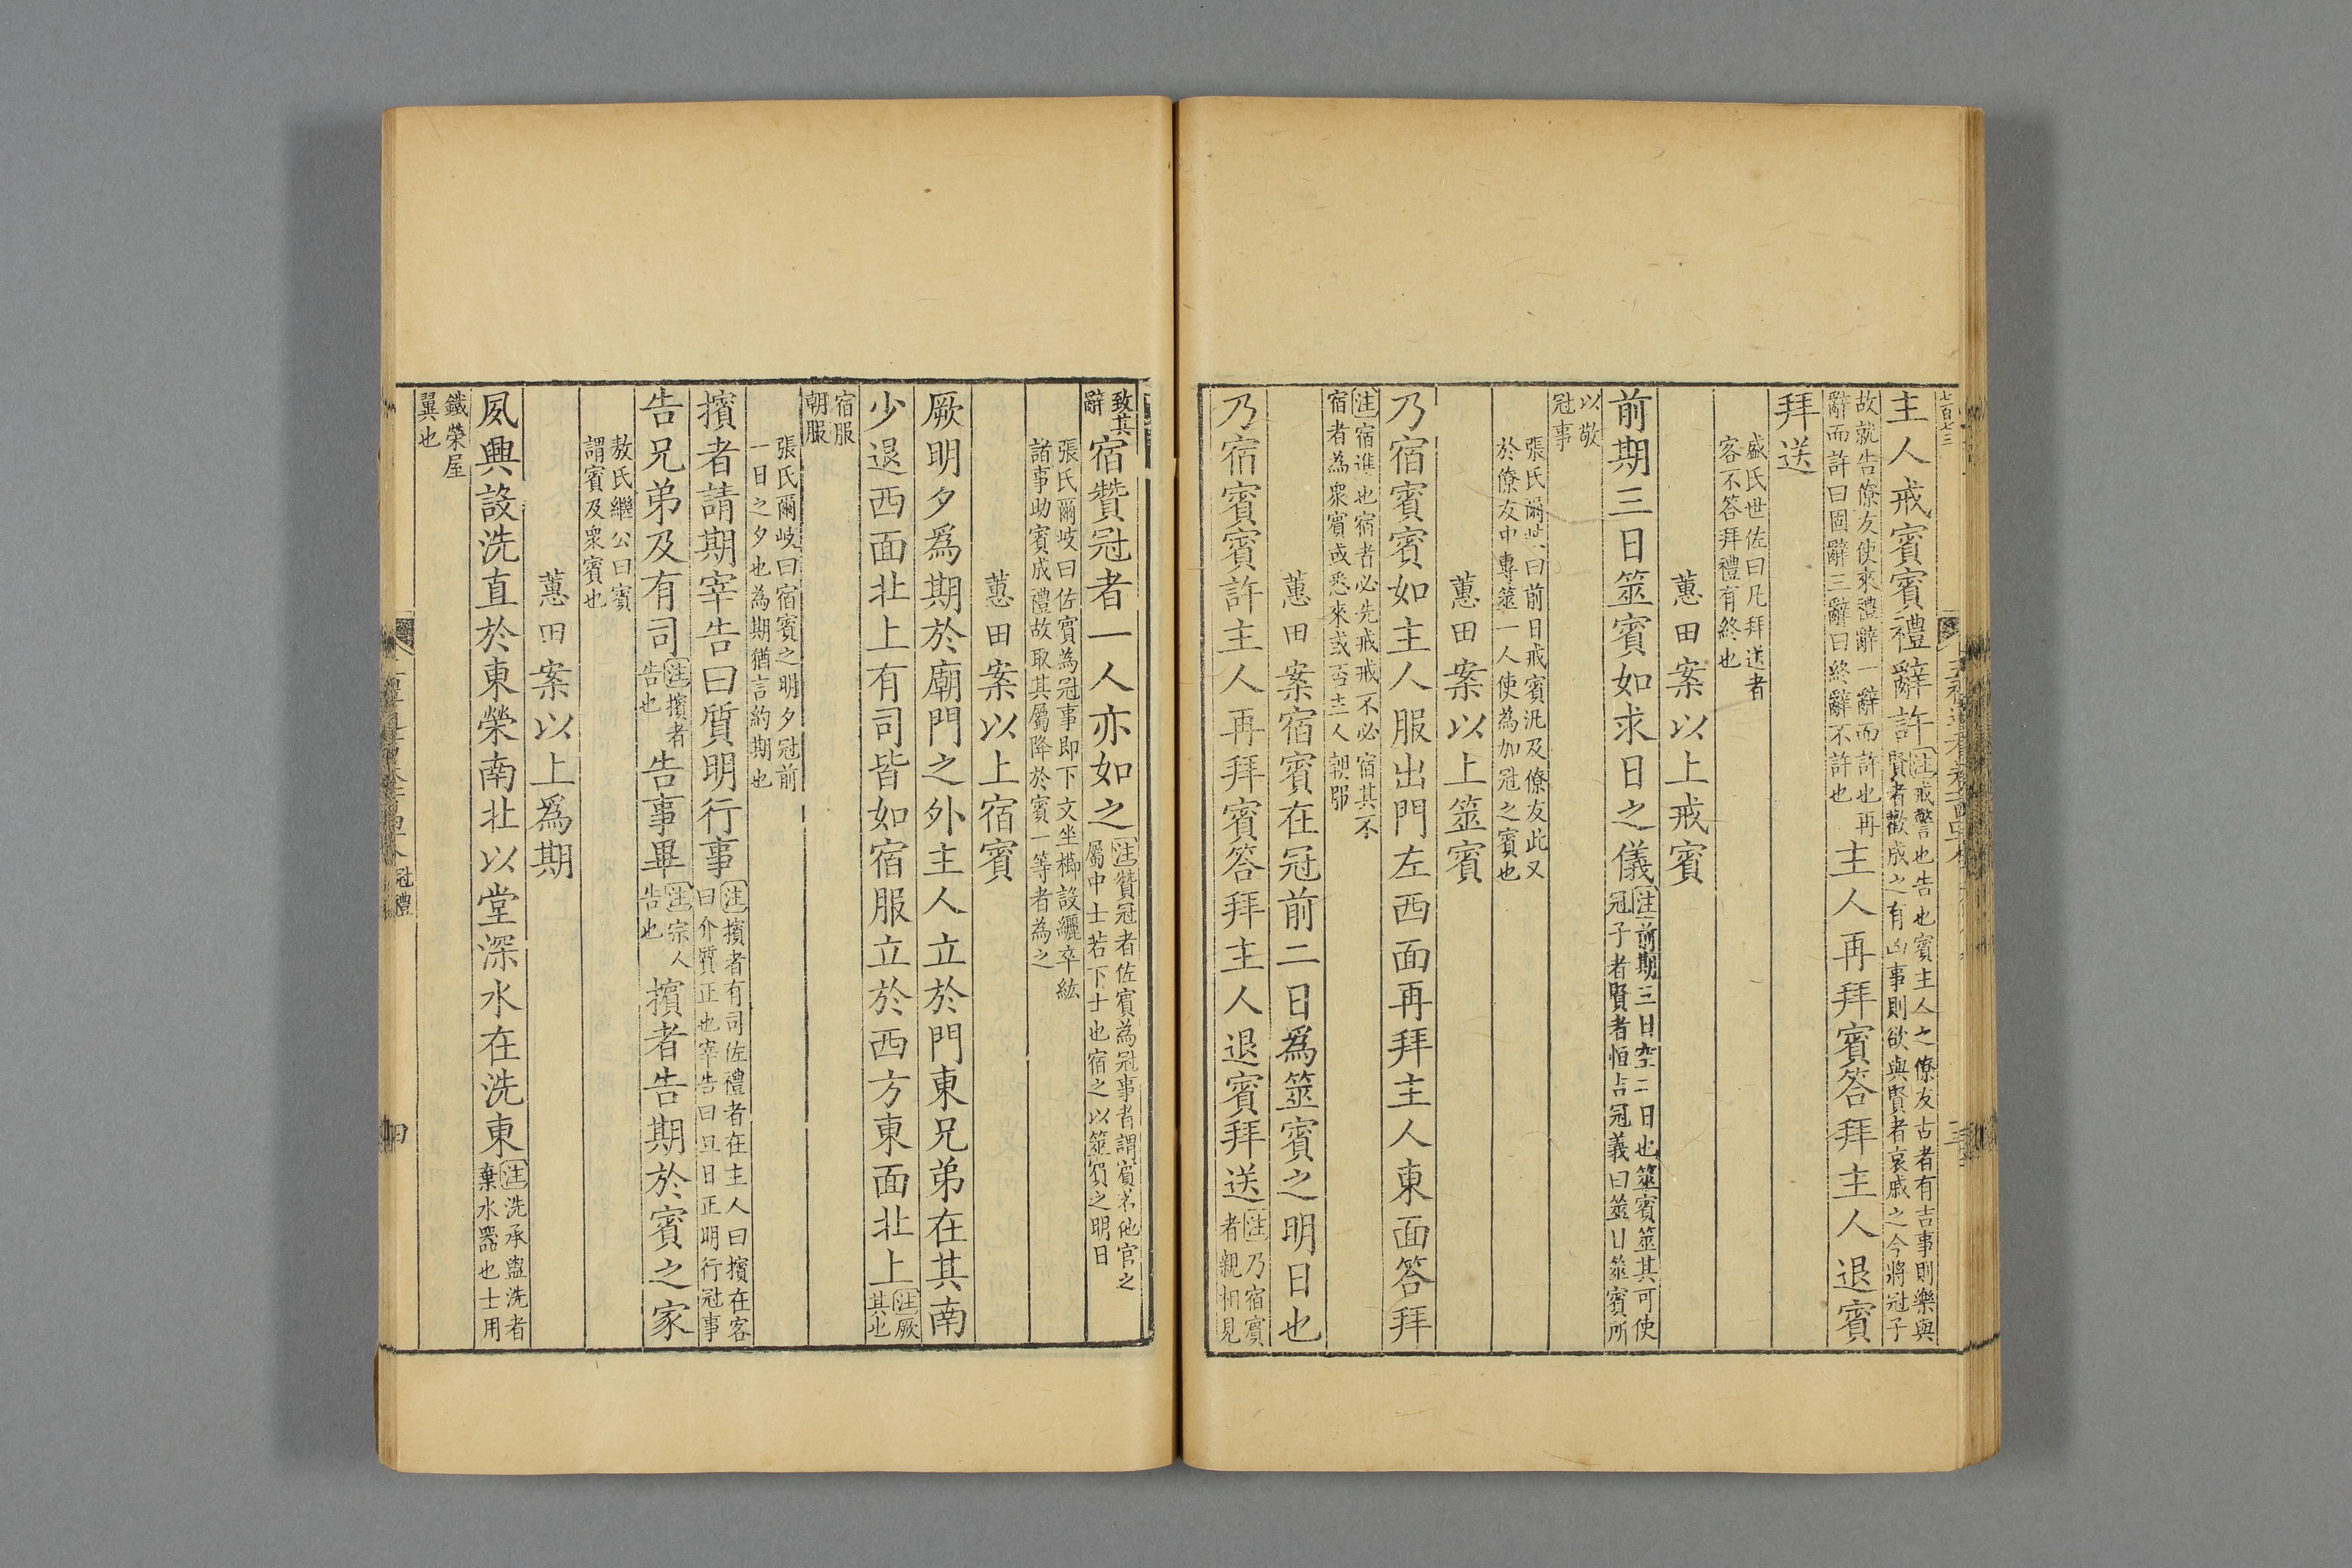 七百七三
主人戒賓賓禮辭許注戒警也告也賓主人之僚友古者有吉事則樂與賢者歡成之有凶事則欲與賢者哀戚之今將冠子
故就告僚友使來禮辭一辭而許也再辭而許曰固辭三辭曰終辭不許也主人再拜賓答拜主人退賓
拜送
盛氏世佐曰凡拜送者客不答拜禮有終也
蕙田案以上戒賓
前期三日筮賓如求日之儀注前期三日空二日也筮賓筮其可使冠子者賢者恒吉冠義曰筮日筮賓所
以敬冠事
張氏爾岐曰前日戒賓汎及僚友此又於僚友中專筮一人使為加冠之賓也
蕙田案以上筮賓
乃宿賓賓如主人服出門左西面再拜主人東面答拜
注宿進也宿者必先戒戒不必宿其不宿者為眾賓或悉來或否主人朝服
蕙田案宿賓在冠前二日爲筮賓之明日也
乃宿賓賓許主人再拜賓答拜主人退賓拜送注乃宿賓者親相見
致其辭宿贊冠者一人亦如之注贊冠者佐賓為冠事者謂賓若他官之屬中士若下士也宿之以筮賓之明日
張氏爾岐曰佐賓為冠事即下文坐櫛設纚卒紘諸事助賓成禮故取其屬降於賓一等者為之
蕙田案以上宿賓
厥明夕爲期於廟門之外主人立於門東兄弟在其南
少退西面北上有司皆如宿服立於西方東面北上注厥其也
宿服朝服
張氏爾岐曰宿賓之明夕冠前一日之夕也為期猶言約期也
擯者請期宰告曰質明行事注擯者有司佐禮者在主人曰擯在客曰介質正也宰告曰旦日正明行冠事
告兄弟及有司注擯者告也告事畢注宗人告也擯者告期於賓之家
敖氏繼公曰賓謂賓及眾賓也
蕙田案以上爲期
夙興設洗直於東榮南北以堂深水在洗東注洗承盥洗者棄水器也士用
鐵榮屋翼也
冠禮
四